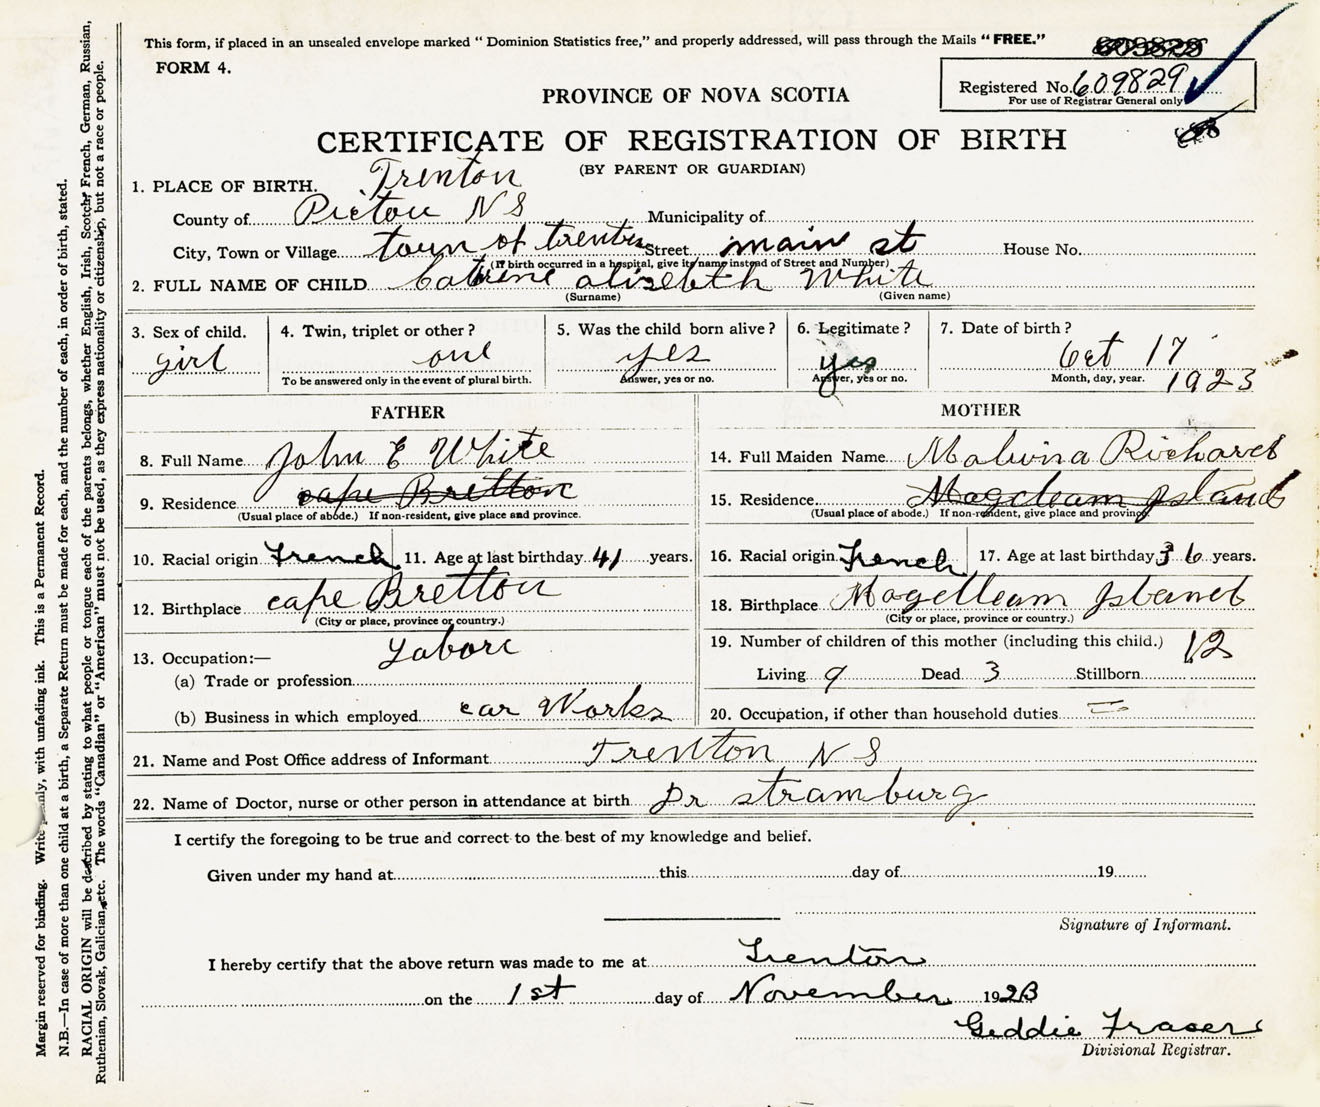 This form, if placed in an unsealed envelope marked “ Dominion Statistics free,” and properly addressed, will pass through the Mails “ FREE.”
FORM 4.
Registered No. 609829
For use of Registrar General only
PROVINCE OF NOVA SCOTIA
CERTIFICATE OF REGISTRATION OF BIRTH
(BY PARENT OR GUARDIAN)
1. PLACE OF BIRTH. Trenton
County of Pictou N S Municipality of
City, Town or Village town of trenton Street main st House No.
(If birth occurred in a hospital, give its name instead of Street and Number)
2. FULL NAME OF CHILD Catrine alizebth White
(Surname) (Given name)
3. Sex of child. 4. Twin, triplet or other ? 5. Was the child born alive ? 6. Legitimate ? 7. Date of birth ?
girl one yes yes Oct 17
To be answered only in the event of plural birth. Answer, yes or no. Answer, yes or no. Month, day, year. 1923
FATHER MOTHER
8. Full Name John E White 14. Full Maiden Name Malvina Richard
9. Residence cape Bretton 15. Residence Magdleam Islands
(Usual place of abode.) If non-resident, give place and province. (Usual place of abode.) If non-resident, give place and province.
10. Racial origin French 11. Age at last birthday 41 years. 16. Racial origin French 17. Age at last birthday 36 years.
12. Birthplace cape Bretton 18. Birthplace Magelleam Island
(City or place, province or country.) (City or place, province or country.)
13. Occupation:— Labore 19. Number of children of this mother (including this child.) 12
(a) Trade or profession Living 9 Dead 3 Stillborn
(b) Business in which employed car Works 20. Occupation, if other than household duties =
21. Name and Post Office address of Informant Trenton N S
22. Name of Doctor, nurse or other person in attendance at birth Dr stramburg
I certify the foregoing to be true and correct to the best of my knowledge and belief.
Given under my hand at this day of 19
Signature of Informant.
I hereby certify that the above return was made to me at Trenton
on the 1st day of November 1923
Geddie Fraser
Divisional Registrar.
Margin reserved for binding. Write only, with unfading ink. This is a Permanent Record.
N.B.—In case of more than one child at a birth, a Separate Return must be made for each, and the number of each, in order of birth, stated.
RACIAL ORIGIN will be described by stating to what people or tongue each of the parents belongs, whether English, Irish, Scotch, French, German, Russian,
Ruthenian, Slovak, Galician, etc. The words “Canadian” or “American” must not be used, as they express nationality or citizenship, but not a race or people.